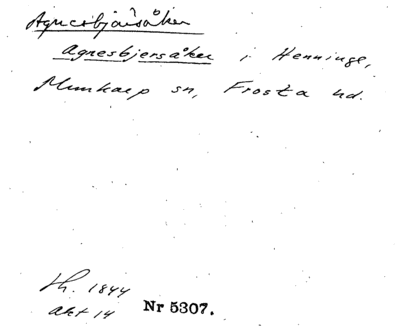 Agnesbjärsåker
Agnesbjersåker i Henninge,
Munkarp sn, Frosta hd.
Lh. 1844
akt 14 Nr 5307.